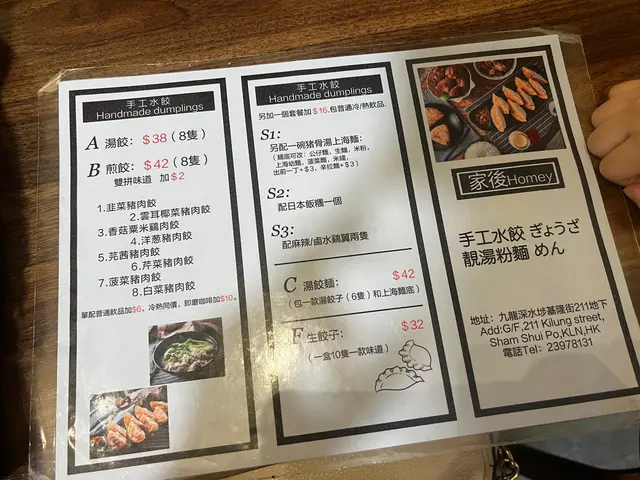 手工水餃
Handmade dumplings
A 湯餃: $38 (8隻)
B 煎餃: $42 (8隻)
雙拼味道 加$2
1.韭菜豬肉餃
2.雲耳椰菜豬肉餃
3.香菇粟米鷄肉餃
4.洋葱豬肉餃
5.芫茜豬肉餃
6.芹菜豬肉餃
7.菠菜豬肉餃
8.白菜豬肉餃
單配普通飲品加$6，冷熱同價，即磨咖啡加$10。
手工水餃
Handmade dumplings
另加一個套餐加$16.包普通冷/熱飲品.
S1:
另配一碗猪骨湯上海麵:
(麵底可改: 公仔麵，生麵，米粉，
上海幼麵，菠菜麵，米綫，
出前一丁+$3，辛拉麵+$3)
S2:
配日本飯糰一個
S3:
配麻辣/鹵水鷄翼兩隻
C 湯餃麵: $42
(包一款湯餃子(6隻)和上海麵底)
F 生餃子: $32
(一盒10隻一款味道)
家後Homey
手工水餃 ぎょうざ
靚湯粉麵 めん
地址: 九龍深水埗基隆街211地下
Add:G/F,211 Kilung street,
Sham Shui Po,KLN,HK
電話Tel: 23978131